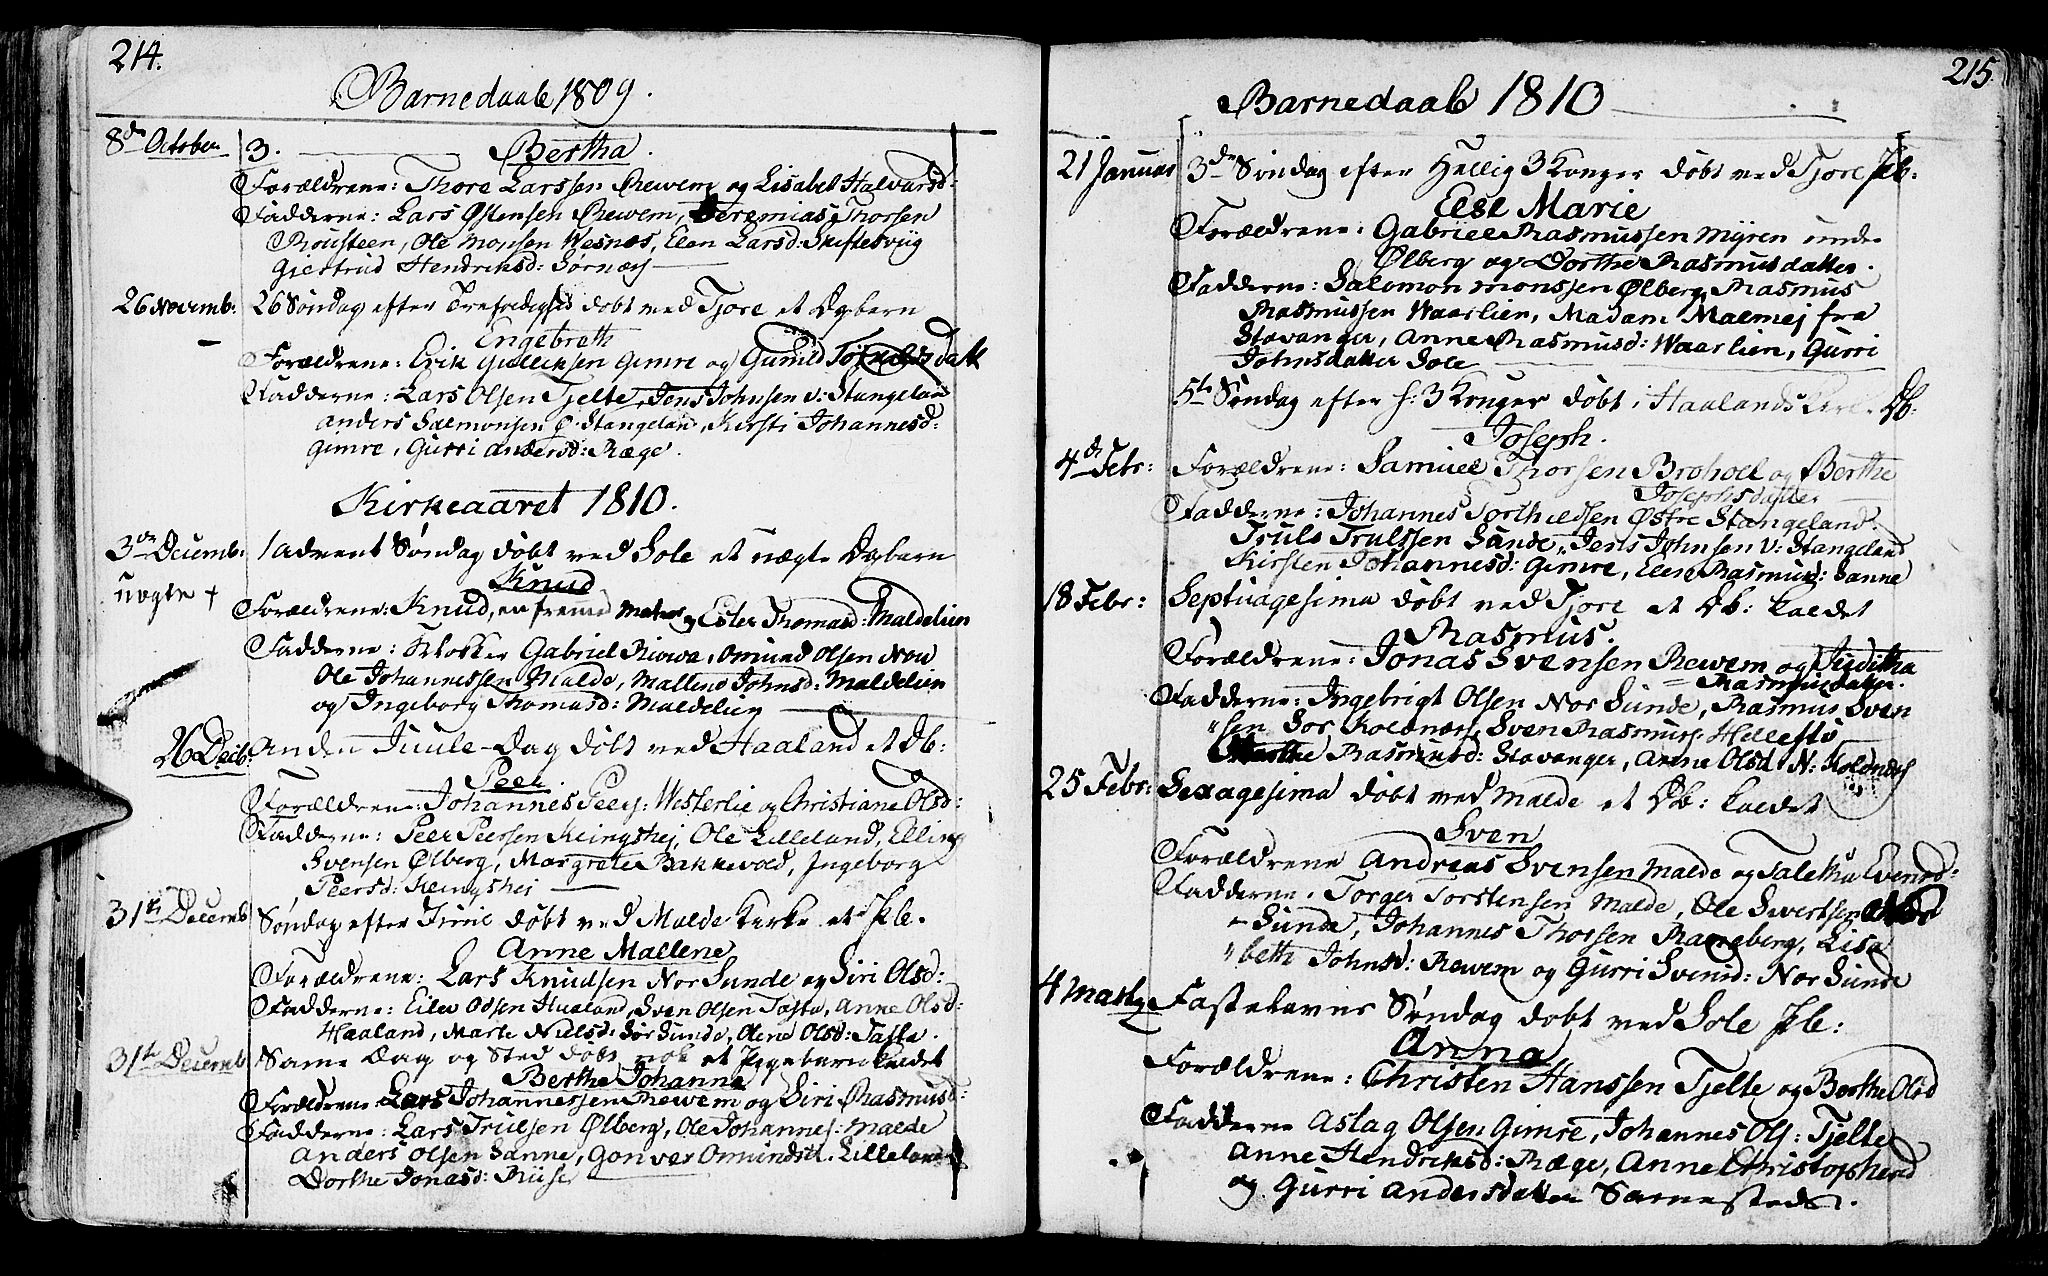 214.
Barnedaab 1809.
8de October 3. Bertha.
Forældrene: Thore Larssen Rewem og Lisabet Halvorsd:
Fadderne: Lars Ostensen Rewem, Jeremias Thorsen
Rousteen, Ole Monsen Wesnæs, Elen Larsd: Skiftesvig
Giertrud Hendriksd: Sørnæs
26 Novemb: 26 Søndag efter Trefoldighed døbt ved Tjore et Dgbarn
Engebreth
Forældrene: Erik Gulliksen Gimre og Gunild
Fadderne: Lars Olsen Tjelte, Jens Johnsen v: Stangeland
Anders Salmonsen Ø. Stangeland, Kirsti Johannesd:
Gimre, Gurri Andersd: Ræge.
Kirkeaaret 1810.
3de Decemb: 1 Advent Søndag døbt ved Sole et uægte Dgbarn
uægte + Knud
Forældrene: Knud, en fremd og Ester Thomasd: Maldelien
Fadderne: Klokker Gabriel Omund Olsen
Ole Johannessen Malde, Mallene Johnsd: Maldelien
og Ingeborg Thomasd: Maldelien
26 Decb: Anden Juule-Dag døbt ved Haaland et Db:
Peer.
Forældrene: Johannes Peers: Westerlie og Christiane Olsd:
Fadderne: Peer Peersen Keingshej, Ole Lilleland, Elling
Svensen Ølberg, Margrete Bakkevold, Ingeborg
Peersd: Keingshej
31te Decemb Søndag efter Juul døbt ved Malde Kerke et Pb.
Anne Mallene
Forældrene: Lars Knudsen Nor Sunde og Siri Olsd:
Fadderne: Eilev Odsen Haaland, Sven Olsen Tasta, Anne Olsd:
Haaland, Marte Nielsd: Sør Sunde, Olena Olsd: Tasta.
31te Decemb Same Dag og Sted døbt nok et Pigebarn kaldet
Berthe Johanna
Forældrene: Lars Johannessen Rewem og Siri Rasmusd:
Fadderne: Lars Trulsen Ølberg, Ole Johannes: Malde
Anders Olsen Sanne, Gonvor Omundsd. Lilleland
Dorthe Jonasd: Riise
215.
Barnedaab 1810
21 Januar 3de Søndag efter Hellig 3 Konger døbt ved Tjore Pb:
Else Marie
Forældrene: Gabriel Rasmussen Myren under
Ølberg og Dorthe Rasmusdatter.
Fadderne: Salomon Monssen Ølberg, Rasmus
Rasmussen Waarlien, Madam Malmej fra
Stavanger, Anne Rasmusd: Waarlien, Gurri
Johnsdatter Sole
5te Søndag efter h: 3 Konger døbt i Haalands Kerk. Db:
Joseph.
4de Febr: Forældrene: Samuel Thorsen Broholl og Berthe
Josephsdatter
Fadderne: Johannes Torchildsen Østre Stangeland.
Truls Trulssen Sande, Jens Johnsen V: Stangeland
Kirsten Johannesd: Gimre, Elen Rasmusd: Sanne
18 Febr: Septuagesima døbt ved Tjore et Db: kaldet
Rasmus.
Forældrene: Jonas Svensen Rewem og Juditha
Rasmusdatter.
Fadderne: Ingebrigt Olsen Nor Sunde, Rasmus Sven
"sen Sør Kolnæs, Sven Rasmuss: Hellestø
Marthe Rasmusd: Stavanger, Anne Olsd N: Kolnæs
25 Febr: Sexagesima døbt ved Malde et Db: kaldet
Sven
Forældrene Andreas Svensen Malde og Taletha Evensd:
Fadderne: Torger Torstensen Malde, Ole Sivertsen
Sunde, Johannes Thorsen Rangberg, Lisa
"beth Johnsd: Rewem og Gurri Svensd: Nor Sunde
4 Marty Fastelavns Søndag døbt ved Sole Pb:
Anna
Forældrene: Christen Hanssen Tjelte og Berthe Olsd
Fadderne Aslag Olsen Gimre, Johannes Ols: Tjelte
Anne Hendriksd: Ræge, Anne Christophersd
og Gurri Andersdatter Sammesteds.